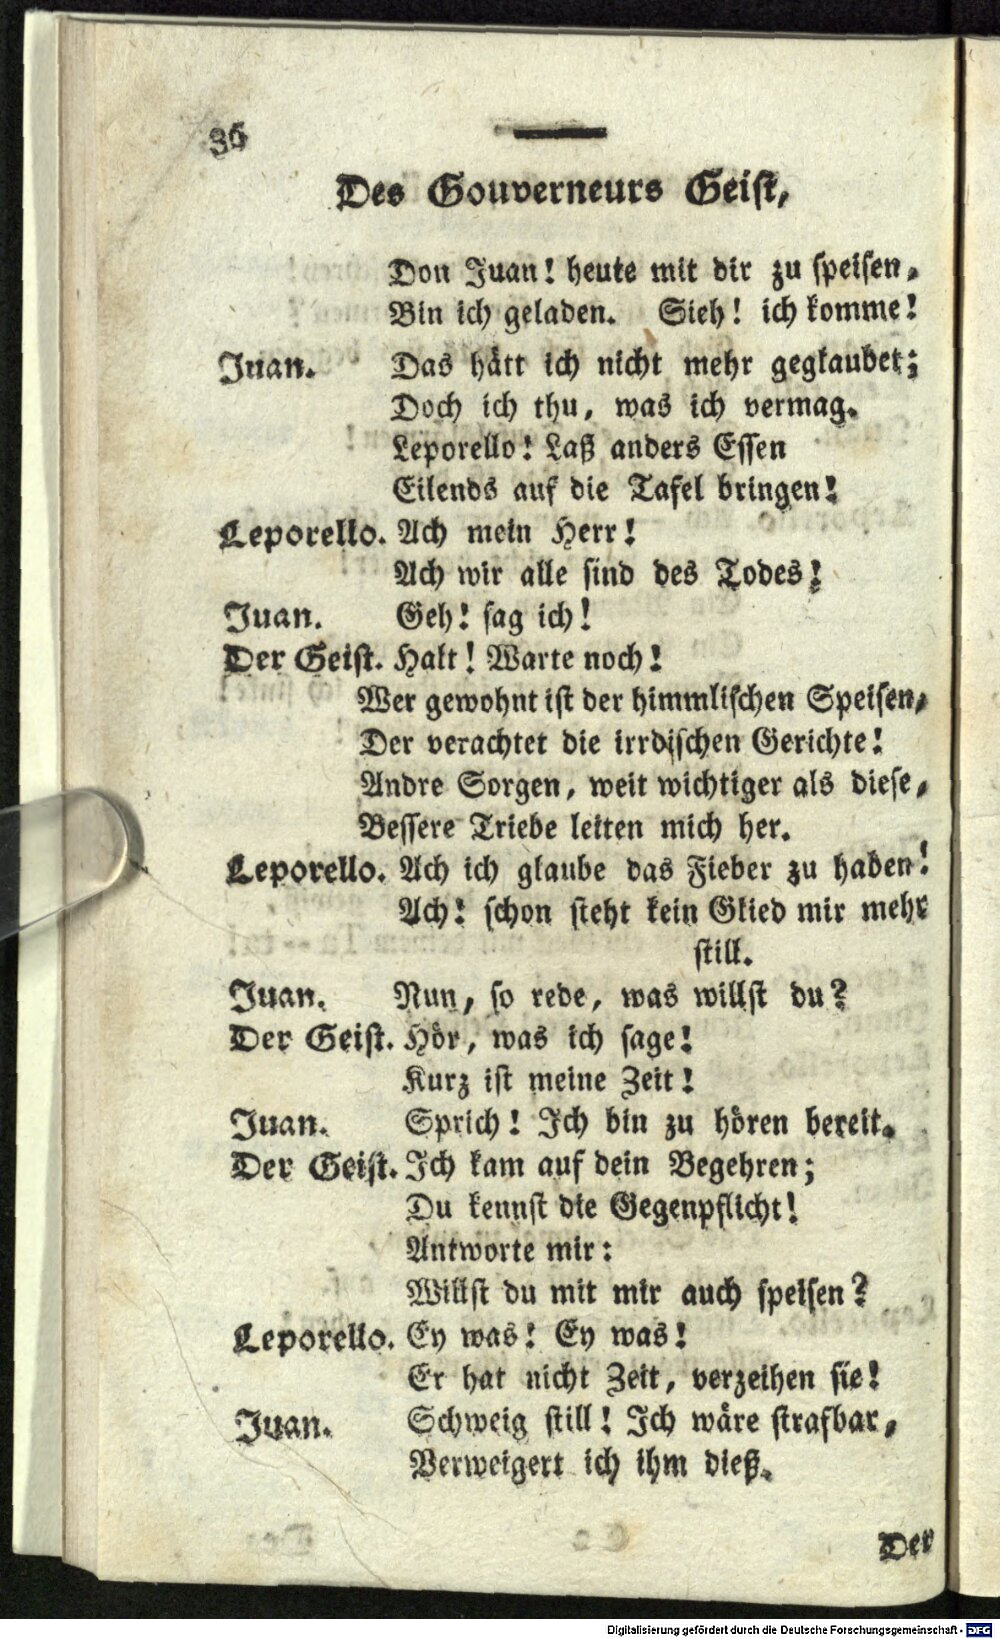 36
Des Gouverneurs Geist,
Don Juan! heute mit dir zu speisen,
Bin ich geladen. Sieh! ich komme!
Juan. Das hätt ich nicht mehr geglaubet;
Doch ich thu, was ich vermag.
Leporello! Laß anders Essen
Eilends auf die Tafel bringen!
Leporello. Ach mein Herr!
Ach wir alle sind des Todes!
Juan. Geh! sag ich!
Der Geist. Halt! Warte noch!
Wer gewohnt ist der himmlischen Speisen,
Der verachtet die irrdischen Gerichte!
Andre Sorgen, weit wichtiger als diese,
Bessere Triebe leiten mich her.
Leporello. Ach ich glaube das Fieber zu haben!
Ach! schon steht kein Glied mir mehr
still.
Juan. Nun, so rede, was willst du?
Der Geist. Hör, was ich sage!
Kurz ist meine Zeit!
Juan. Sprich! Ich bin zu hören bereit.
Der Geist. Ich kam auf dein Begehren;
Du kennst die Gegenpflicht!
Antworte mir:
Willst du mit mir auch speisen?
Leporello. Ey was! Ey was!
Er hat nicht Zeit, verzeihen sie!
Juan. Schweig still! Ich wäre strafbar,
Verweigert ich ihm dieß.
Der
Digitalisierung gefördert durch die Deutsche Forschungsgemeinschaft - DFG